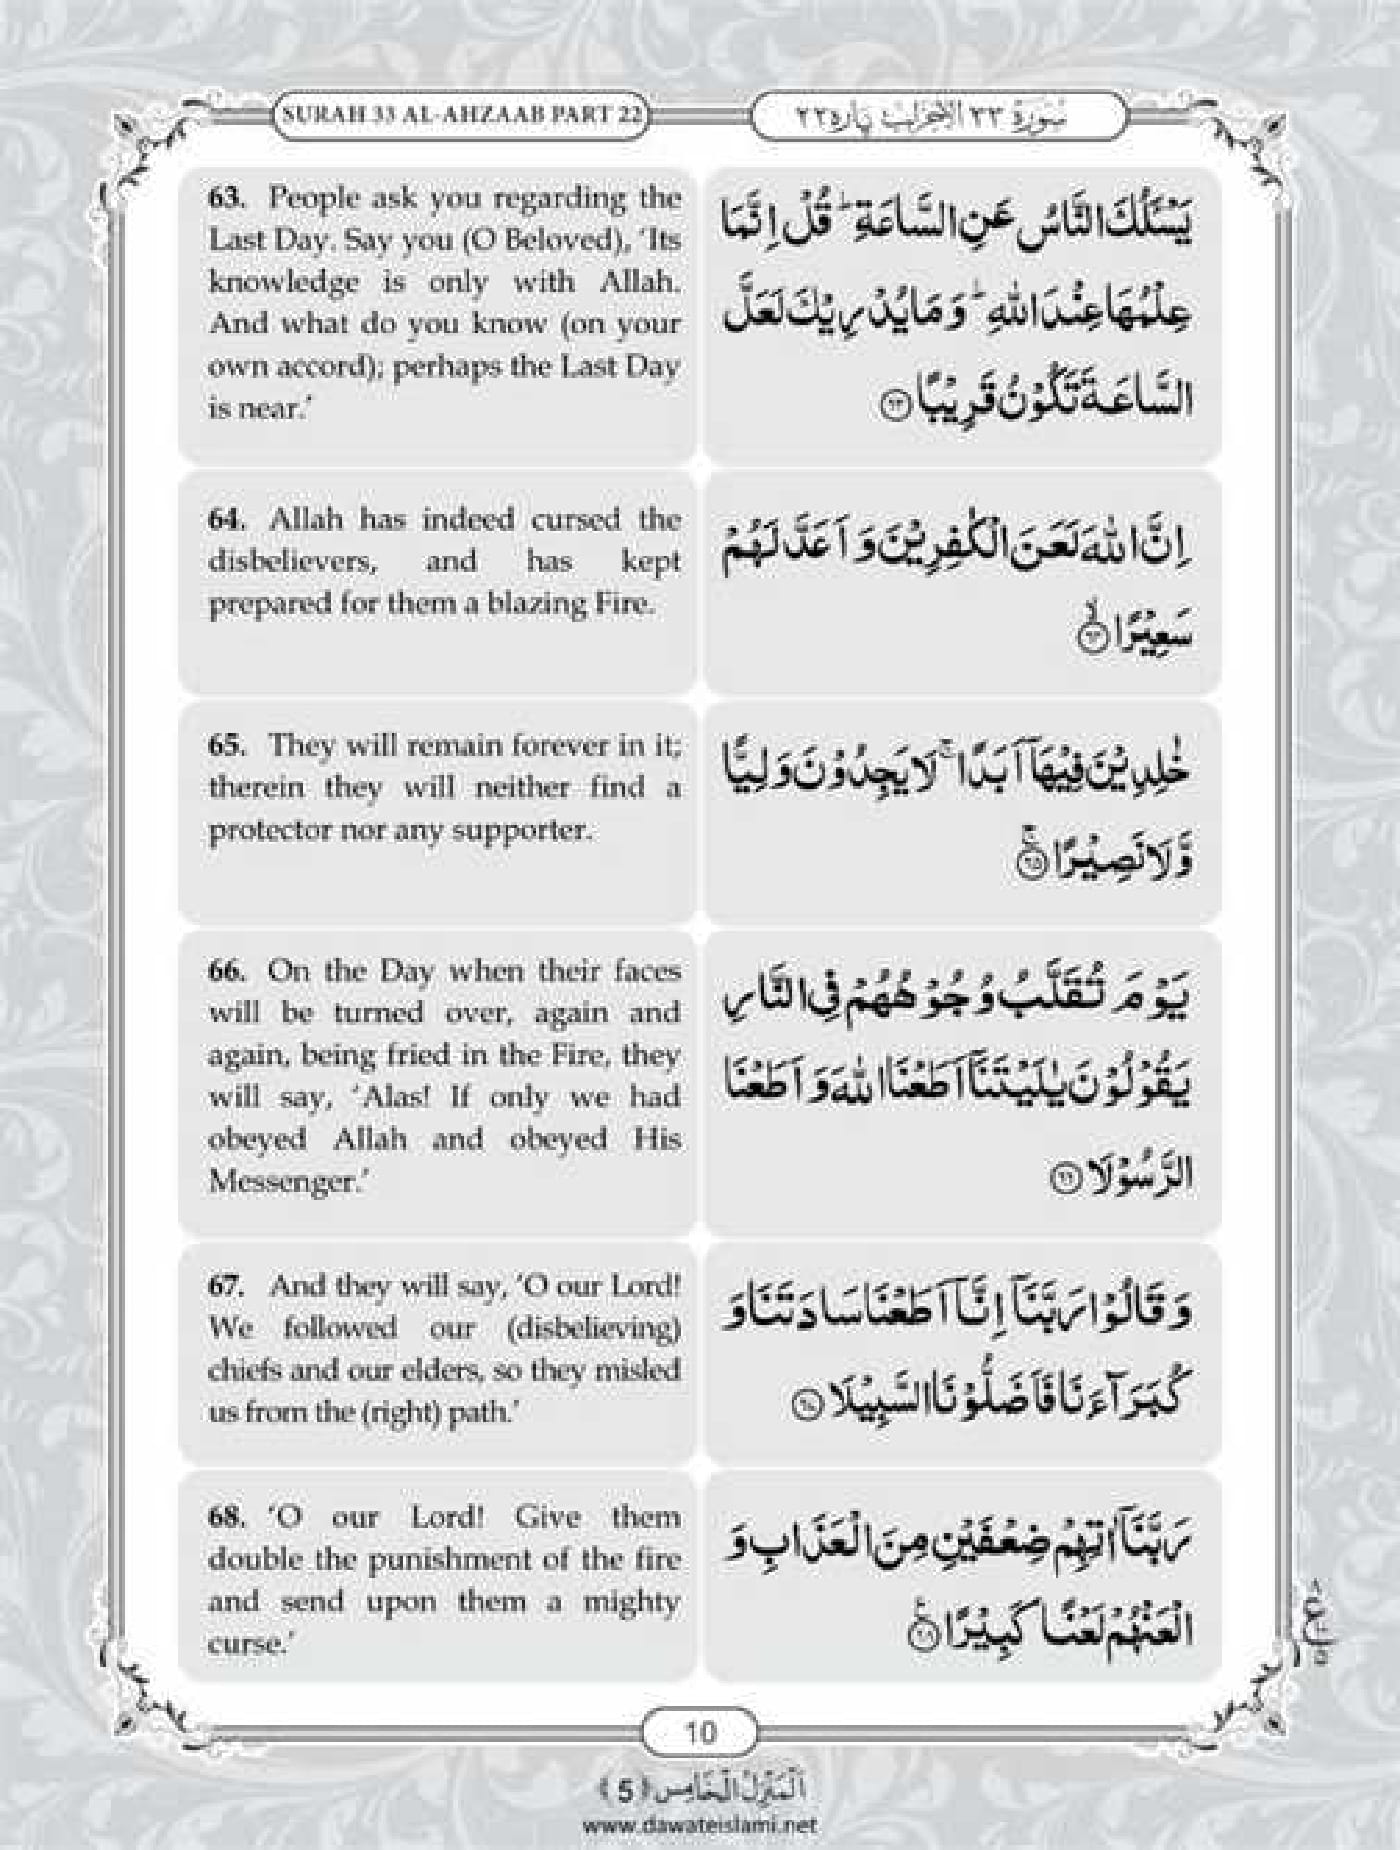 SURAH 33 AL-AHZAAB PART 22
سُوْرَةُ ٣٣ الاحزاب پارہ ٢٢
63. People ask you regarding the
Last Day. Say you (O Beloved), ‘Its
knowledge is only with Allah.
And what do you know (on your
own accord); perhaps the Last Day
is near.’
یَسْـَٔلُكَ النَّاسُ عَنِ السَّاعَةِ ؕ قُلْ اِنَّمَا
عِلْمُهَا عِنْدَ اللّٰهِ ؕ وَ مَا یُدْرِیْكَ لَعَلَّ
السَّاعَةَ تَكُوْنُ قَرِیْبًا ﴿٦٣﴾
64. Allah has indeed cursed the
disbelievers, and has kept
prepared for them a blazing Fire.
اِنَّ اللّٰهَ لَعَنَ الْكٰفِرِیْنَ وَ اَعَدَّ لَهُمْ
سَعِیْرًا ﴿٦٤﴾ۙ
65. They will remain forever in it;
therein they will neither find a
protector nor any supporter.
خٰلِدِیْنَ فِیْهَاۤ اَبَدًا ۚ لَا یَجِدُوْنَ وَلِیًّا
وَّ لَا نَصِیْرًا ﴿٦٥﴾ۚ
66. On the Day when their faces
will be turned over, again and
again, being fried in the Fire, they
will say, ‘Alas! If only we had
obeyed Allah and obeyed His
Messenger.’
یَوْمَ تُقَلَّبُ وُجُوْهُهُمْ فِی النَّارِ
یَقُوْلُوْنَ یٰلَیْتَنَاۤ اَطَعْنَا اللّٰهَ وَ اَطَعْنَا
الرَّسُوْلَا ﴿٦٦﴾
67. And they will say, ‘O our Lord!
We followed our (disbelieving)
chiefs and our elders, so they misled
us from the (right) path.’
وَ قَالُوْا رَبَّنَاۤ اِنَّاۤ اَطَعْنَا سَادَتَنَا وَ
كُبَرَآءَنَا فَاَضَلُّوْنَا السَّبِیْلَا ﴿٦٧﴾
68. ‘O our Lord! Give them
double the punishment of the fire
and send upon them a mighty
curse.’
رَبَّنَاۤ اٰتِهِمْ ضِعْفَیْنِ مِنَ الْعَذَابِ وَ
الْعَنْهُمْ لَعْنًا كَبِیْرًا ﴿٦٨﴾
10
اَلْمَنْزِلُ الْخَامِس ﴿5﴾
www.dawateislami.net